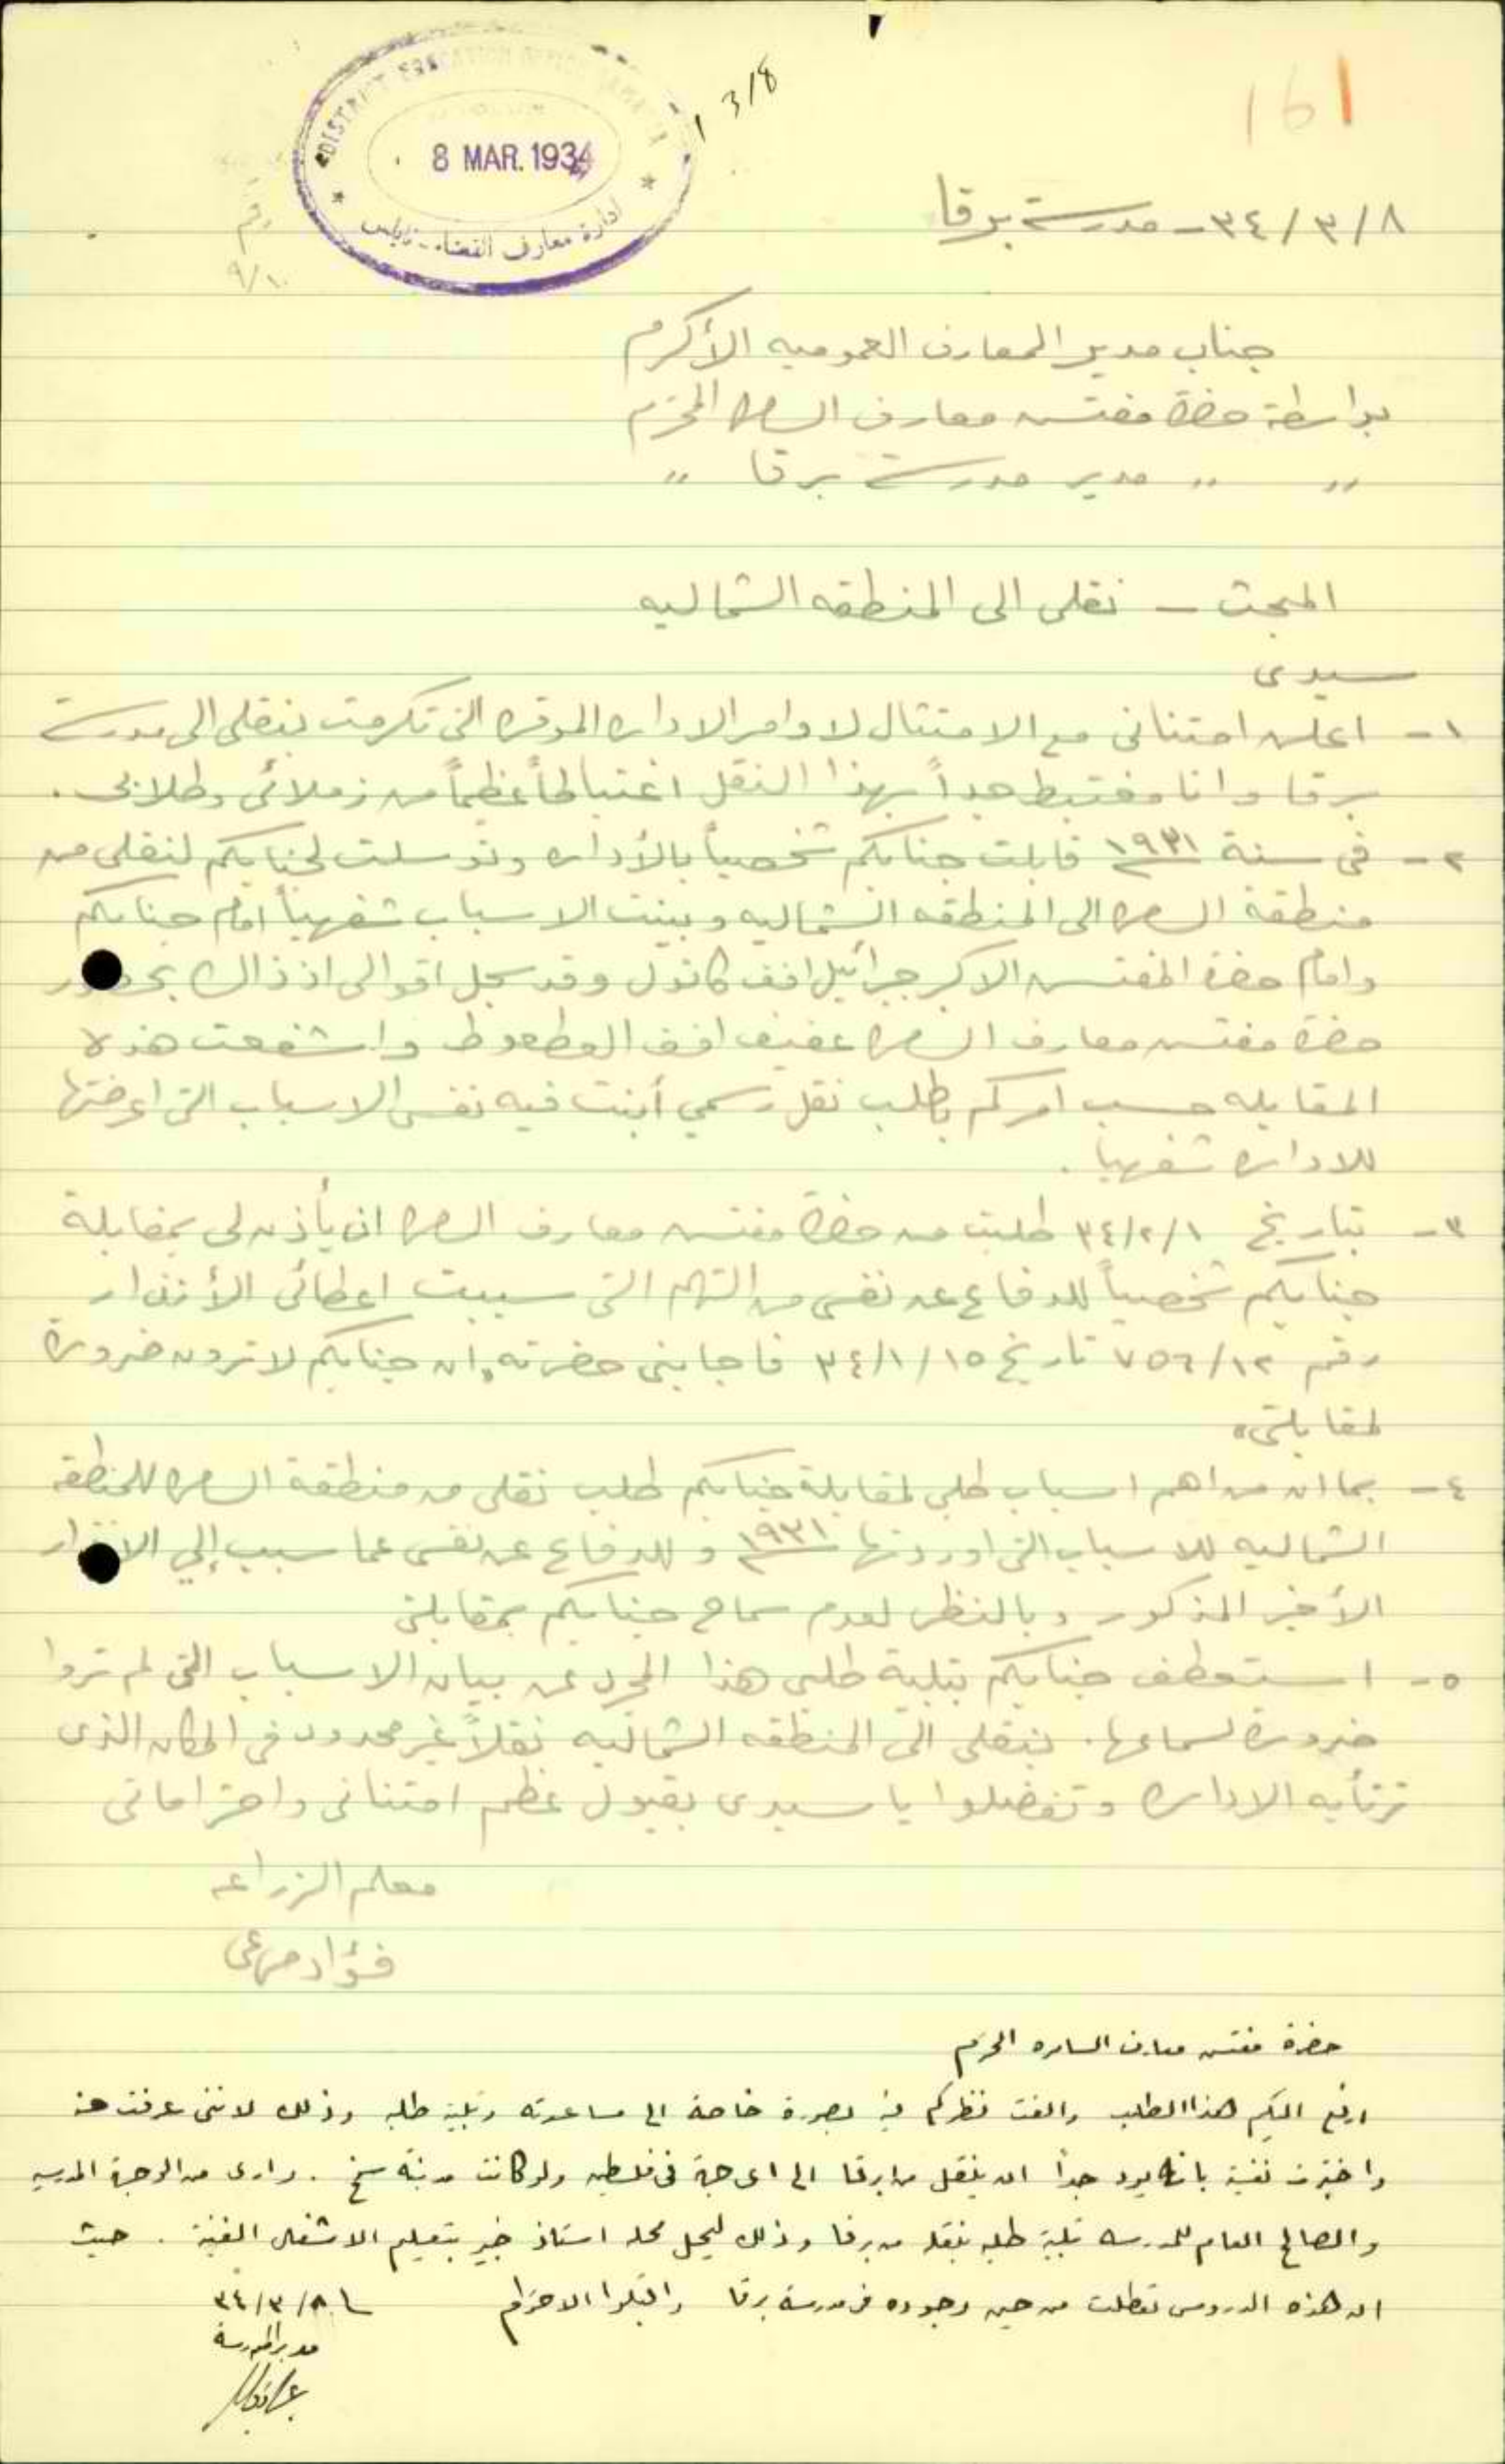 161
1 3/8
DISTRICT EDUCATION OFFICE
8 MAR. 1934
ادارة معارف القضاء - نابلس
٣٤/٣/٨ - مدرسة برقا
جناب مدير المعارف العموميه الأكرم
بواسطة حضرة مفتش معارف السامره المحترم
〃 〃 مدير مدرسة برقا 〃
المبحث - نقلي الى المنطقه الشماليه
سيدى
١- اعلن امتنانى مع الامتثال لاوامر الاداره الموقره التى تكرمت بنقلى الى مدرسة
برقا وانا مغتبط جداً بهذا النقل اغتباطاً عظيماً من زملائى وطلابى .
٢- فى سنة ١٩٣١ قابلت جنابكم شخصياً بالأداره وتوسلت لجنابكم لنقلى من
منطقة السامره الى المنطقه الشماليه وبينت الاسباب شفهياً امام جنابكم
وامام حضرة المفتش الاكبر جبرائيل افندى كاتول وقد سجل اقوالى اذ ذاك بحضور
حضرة مفتش معارف السامره عفيف افندى الطعوط واشفعت هذه
المقابله حسب امركم بطلب نقل رسمي أبنت فيه نفس الاسباب التى اعرضتها
للاداره شفهيا .
٣- بتاريخ ٣٤/٢/١ طلبت من حضرة مفتش معارف السامره ان يأذن لى بمقابلة
جنابكم شخصياً للدفاع عن نفسى من التهم التى سببت اعطائى الأنذار
رقم ٧٥٦/١٢ تاريخ ٣٤/١/١٥ فاجابنى حضرته "ان جنابكم لا ترون ضرورة
لمقابلتى"
٤- بما ان من اهم اسباب طلبى لمقابلة جنابكم طلب نقلى من منطقة السامره للمنطقه
الشماليه للاسباب التى اوردتها ١٩٣١ و للدفاع عن نفسى عما سبب إلي الانذار
الأخير المذكور وبالنظر لعدم سماح جنابكم بمقابلتى
٥- استعطف جنابكم بتلبية طلبى هذا المجرد عن بيان الاسباب التى لم تروا
ضرورة لسماعها . بنقلى الى المنطقه الشماليه نقلاً غير محدود فى المكان الذى
ترتأيه الاداره وتفضلوا يا سيدى بقبول عظيم امتنانى واحتراماتى
معلم الزراعه
فؤاد مرعى
حضرة مفتش معارف السامره المحترم
ارفع اليكم هذا الطلب والفت نظركم فيه بصورة خاصة الى مساعدته وتلبية طلبه وذلك لاننى عرفت منه
واختبرت نفسيته بانه يود جداً ان ينقل من برقا الى اى جهة فى فلسطين ولو كانت مدينة سمخ . وارى من الوجهة المدرسيه
والصالح العام للمدرسه تلبية طلبه بنقله من برقا وذلك ليحل محله استاذ خبير بتعليم الاشغال الفنية . حيث
ان هذه الدروس تعطلت من حين وجوده فى مدرسة برقا واقبلوا الاحترام
٣٤/٣/٨
مدير المدرسة